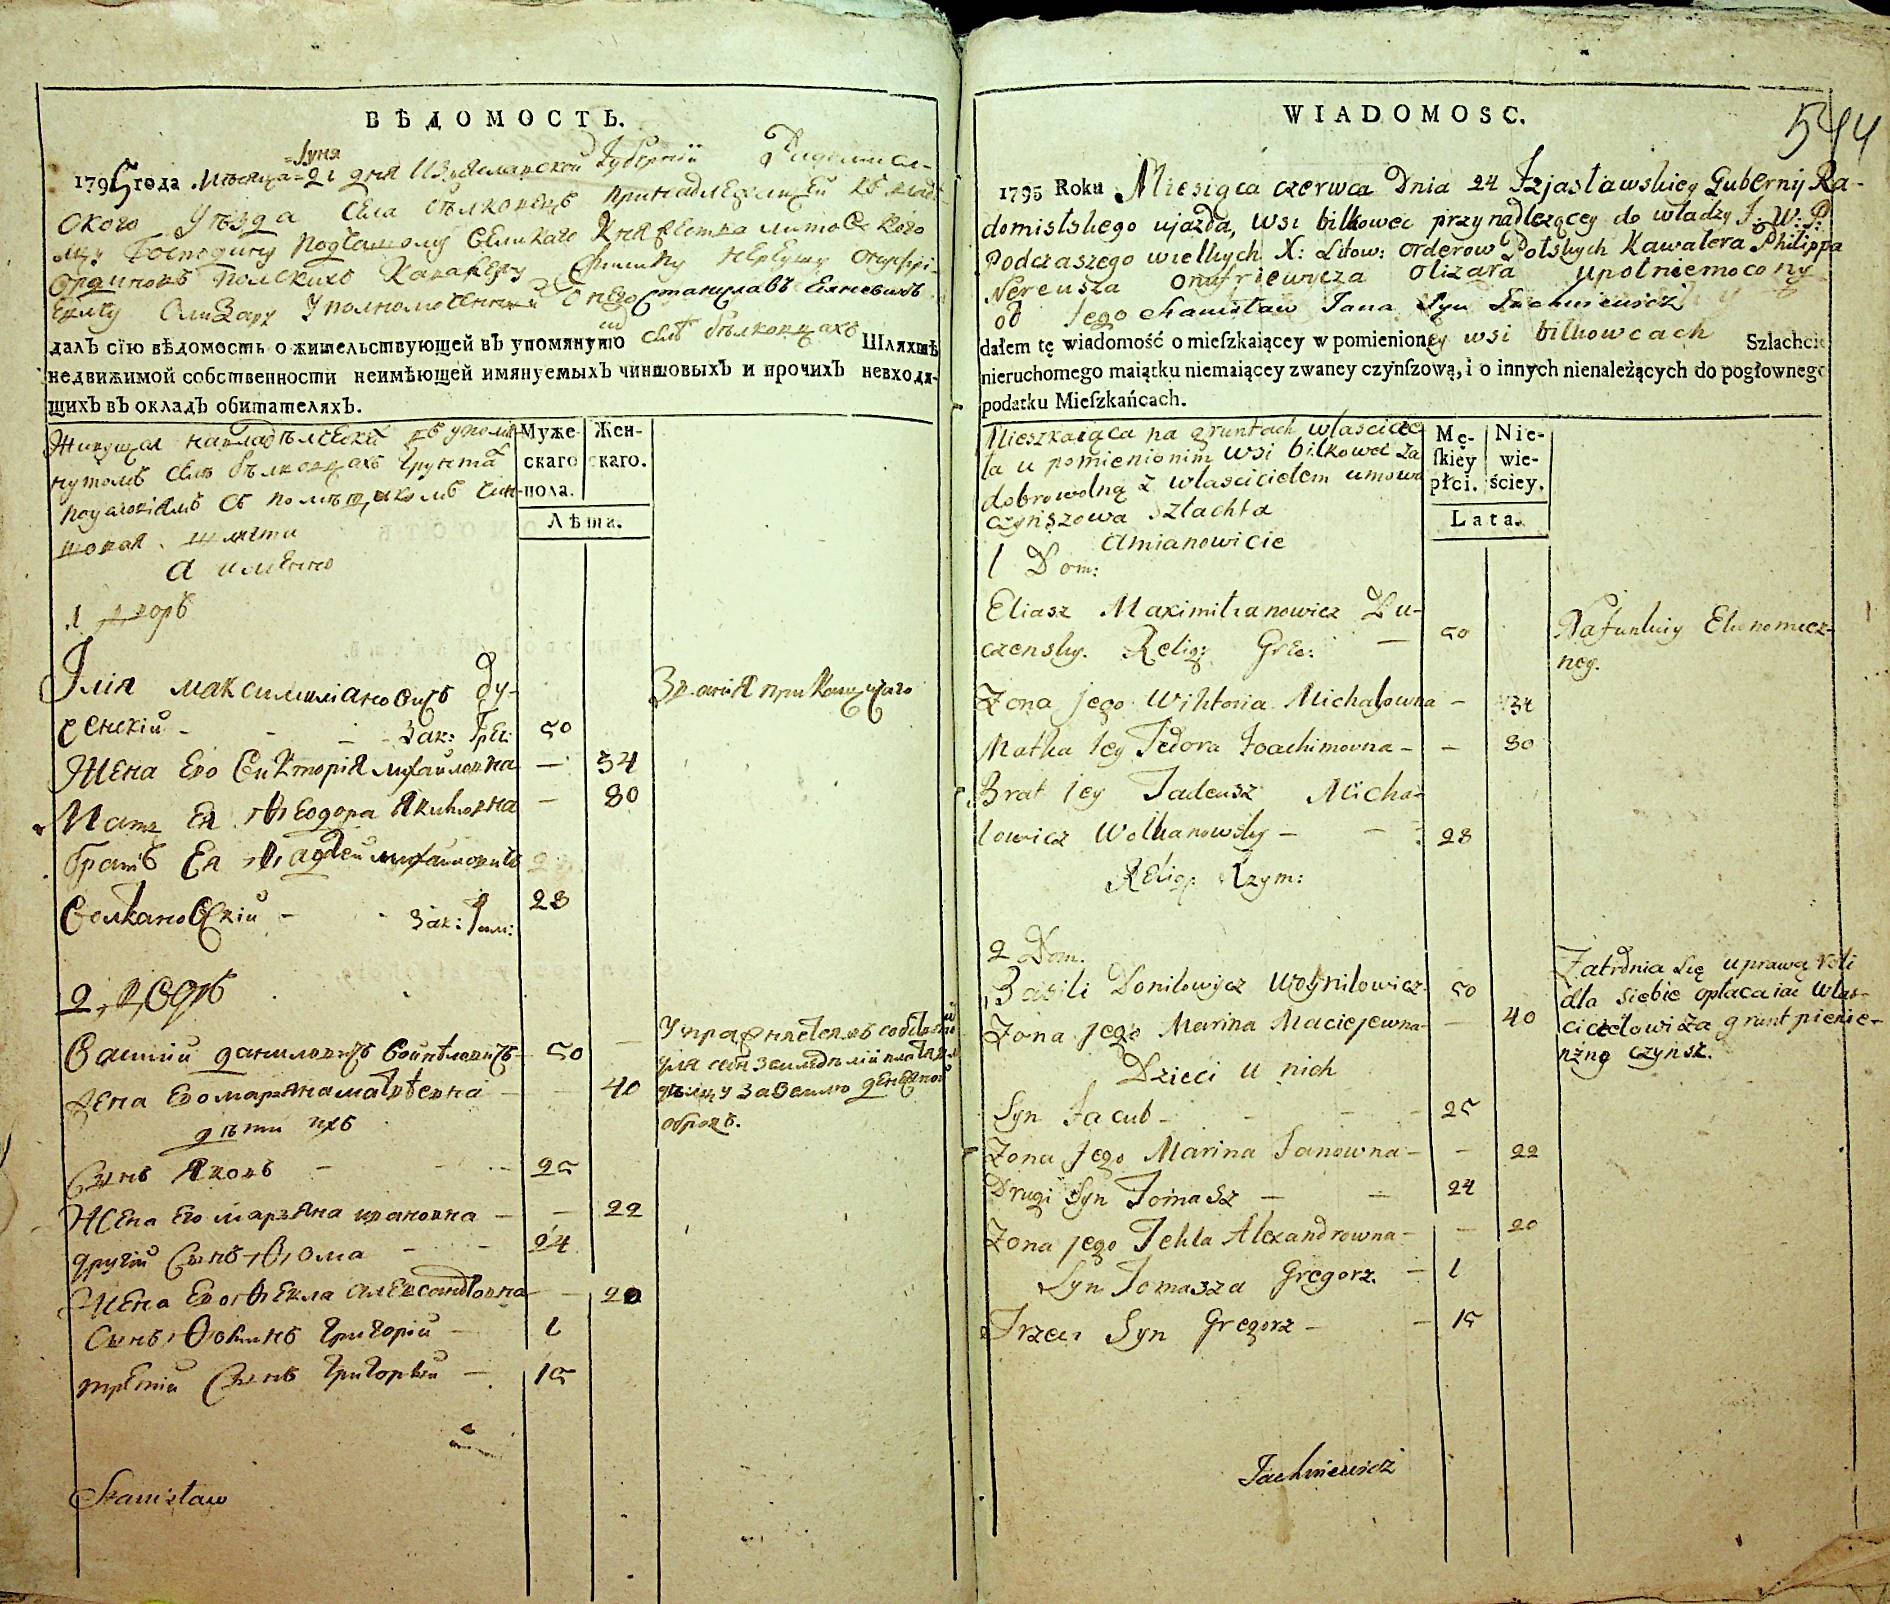 ВѢДОМОСТЬ.
Іуня
1795 года Мѣсяца 21 дня Изяславской Губерніи Радомысл-
ского уѣзда села Бѣлковецъ принадлежащей къ влад-
Господину Подчашому Великаго Княжества Литовскаго
ординовъ Полскихъ Кавалеру Филипу Нереушу Онуфрі-
евичу Олизару Уполномоченный Онего Станиславъ Яхневичъ
далъ сїю вѣдомость о жительствующей въ упомянутой селѣ бѣлковцахъ Шляхтѣ
недвижимой собственности неимѣющей имянуемыхъ чиншовыхъ и прочихъ невходя-
щихъ въ окладъ обитателяхъ.
Живущая на владѣлческой въ упомя-
нутомъ селѣ бѣлковцахъ грунта
по условіямъ съ помѣщикомъ чин-
шовая шляхта
а имѣнно
Муже- Жен-
скаго скаго.
пола.
Лѣта.
1 дворъ
Ілія Максимиліановичъ Лу-
ченскій - - - Зак: Грек: 50
Званія прикащичаго
Жена Его Викторія Михайловна — 34
Мать Ея Ѳеодора Якимовна — 80
братъ Ея Ѳаддей Михайловичъ
Волкановскій - - Зак: Рим: 28
2 Дворъ
Василій Даниловичъ Войниловичъ 50 —
Жена Его Маряна Матвѣевна — — 40
Упражняется въ собственной
для себя земледѣліи платя вла-
дѣлцу за землю денежной
оброкъ.
дѣти ихъ
Сынъ Яковъ — - -- 25
Жена Его Марьяна Ивановна — — 22
другій Сынъ Ѳома - - 24
Жена Его Ѳекла Александровна — — 20
Сынъ Ѳоминъ Григорій — 1
третій Сынъ Григорьй — 15
Stanisław
544
WIADOMOSC.
1795 Roku Miesiąca czerwca Dnia 24 Izjasławskiey Gubernij Ra-
domislskiego ujazda, wsi bilkowec przynadlezącey do władzy J: W: P:
Podczaszego wielkych X: Litow: orderow Polskych Kawalera Philippa
Nereusza onufriewicza olizara upolniemocony
od Jego Stanisław Jana Syn Jachniewicz
dałem tę wiadomość o mieſzkaiącey w pomienioney wsi bilkowcach Szlachcie
nieruchomego maiątku niemaiącey zwaney czynſzową, i o innych nienależących do pogłownego
podatku Mieſzkańcach.
Mieszkaiąca na gruntach wlasciciec
la u pomienionim wsi bilkowec za
dobrowolną z wlascicielem umową
czynszowa szlachta
amianowicie
Mę- Nie-
ſkiey wie-
płci. ściey.
Lata.
1 Dom:
Eliasz Maximilianowicz Lu-
czensky. Relig: Grec: — 50
Na funkciy Ekonomicz-
ney.
Zona jego Wiktoria Michalowna — 34
Matka Jey Fedora Joachimowna — — 80
Brat Jey Tadeusz Micha-
lowicz Wolkanowsky — — 28
Relig: Rzym:
2 Dom.
Basili Donilowicz Woynilowicz 50
Zona Jego Marina Maciejewna — — 40
Zatrdnia się uprawą roli
dla siebie opłacaiąc właś-
cicielowi za grunt pienie-
nżny czynsz.
Dzieci u nich
Syn Jacub — - - - 25
Zona Jego Marina Janowna — — 22
Drugi Syn Tomasz — — 24
Zona jego Tekla Alexandrowna — — 20
Syn Tomasza Gregorz. — 1
Trzeci Syn Gregorz — — 15
Jachniewicz